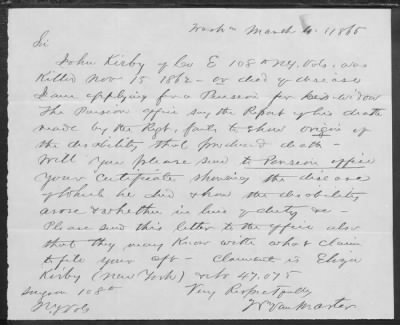 Washn March 4. 1865
Sir
John Kirby of Co E 108th N.Y. Vols. was
Killed Nov 15 1862 - or died of disease
I am applying for a Pension for his widow
The Pension office say the Report of his death
made by the Regt. fails to show origin of
the disability that produced death -
Will you please send to Pension office
your Certificate showing the disease
of which he died & show the disability
arose & whether in line of duty &c -
Please send this letter to the office also
that they may Know with what Claim
to file your aft - Claimant is Eliza
Kirby (New York) 47.075
Surgeon 108th Very Respectfully
NY Vols